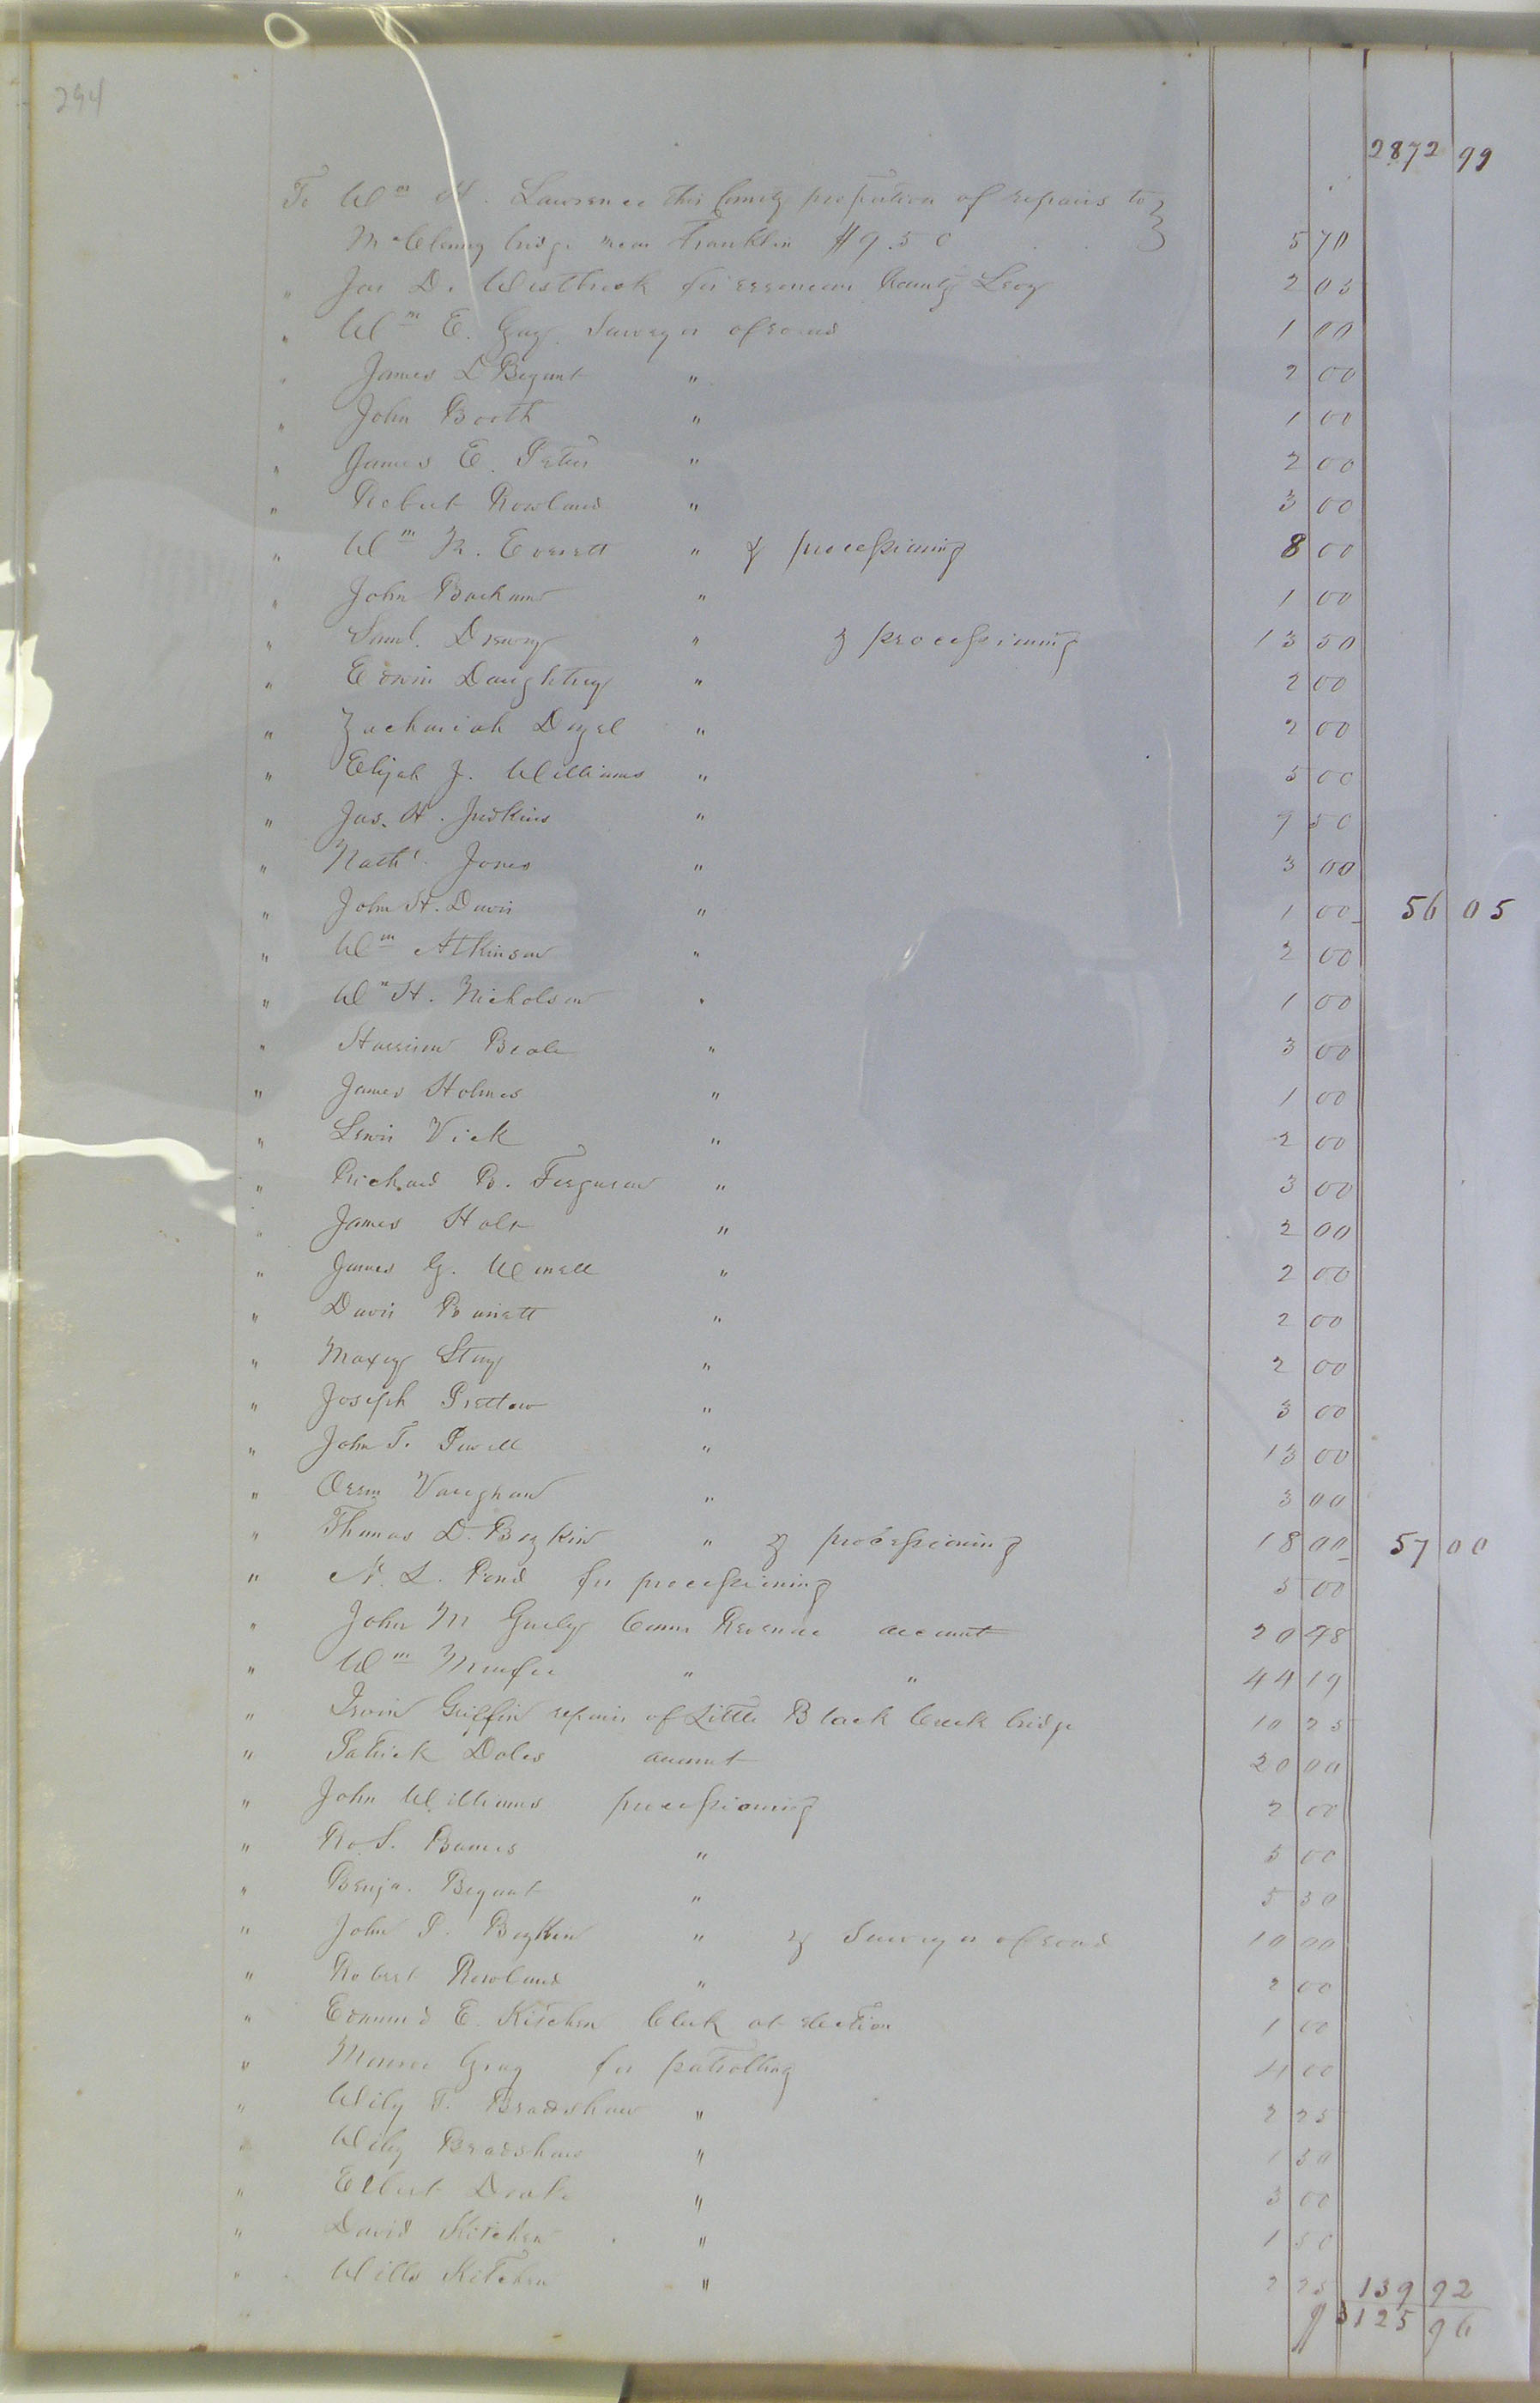 294
2872 99
To Wm H. Lawrence this County proportion of repairs to
McCleny bridge near Franklin $9.50 5 70
" Jas D. Westbrook for erroneous County Levy 2 05
" Wm E. Gay Surveyor of road 1 00
" James L Bryant " 2 00
" John Booth " 1 00
" James E. Peters " 2 00
" Robert Rowland " 3 00
" Wm N. Everett " & processioning 8 00
" John Barham " 1 00
" Saml. Drewry " & processioning 13 50
" Edwin Daughtrey " 2 00
" Zachariah Dezel " 2 00
" Elijah J. Williams " 5 00
" Jas. H. Judkins " 7 50
" Nathl. Jones " 3 00
" John H. Davis " 1 00 56 05
" Wm Atkinson " 2 00
" Wm H. Nicholson " 1 00
" Harrison Beale " 3 00
" James Holmes " 1 00
" Lewis Vick " 2 00
" Richard B. Ferguson " 3 00
" James Holt " 2 00
" James G. " 2 00
" Davis Barrett " 2 00
" Maxey " 2 00
" Joseph Pretlow " 3 00
" John T. Sewell " 13 00
" Orrin Vaughan " 3 00
" Thomas D. Boykin " & processioning 18 00 57 00
" N. L. Pond for processioning 5 00
" John M Gurley Comr Revenue account 20 98
" Wm Minifee " " 44 19
" Irvin Griffin repairs of Little Black Creek bridge 10 25
" Patrick Doles account 20 00
" John Williams processioning 2 00
" Ro. S. Barnes " 5 00
" Benja. Bryant " 5 50
" John P. Boykin " & Surveyor of road 10 00
" Robert Rowland " 2 00
" Edmund E. Kitchen Clerk at election 1 00
" Monroe Gray for patrolling 4 00
" Wiley T. Bradshaw " 2 25
" Wiley Bradshaw " 1 50
" Elbert Drake " 3 00
" David Kitchen " 1 50
" Willis Kitchen " 2 25 139 92
$ 3125 96